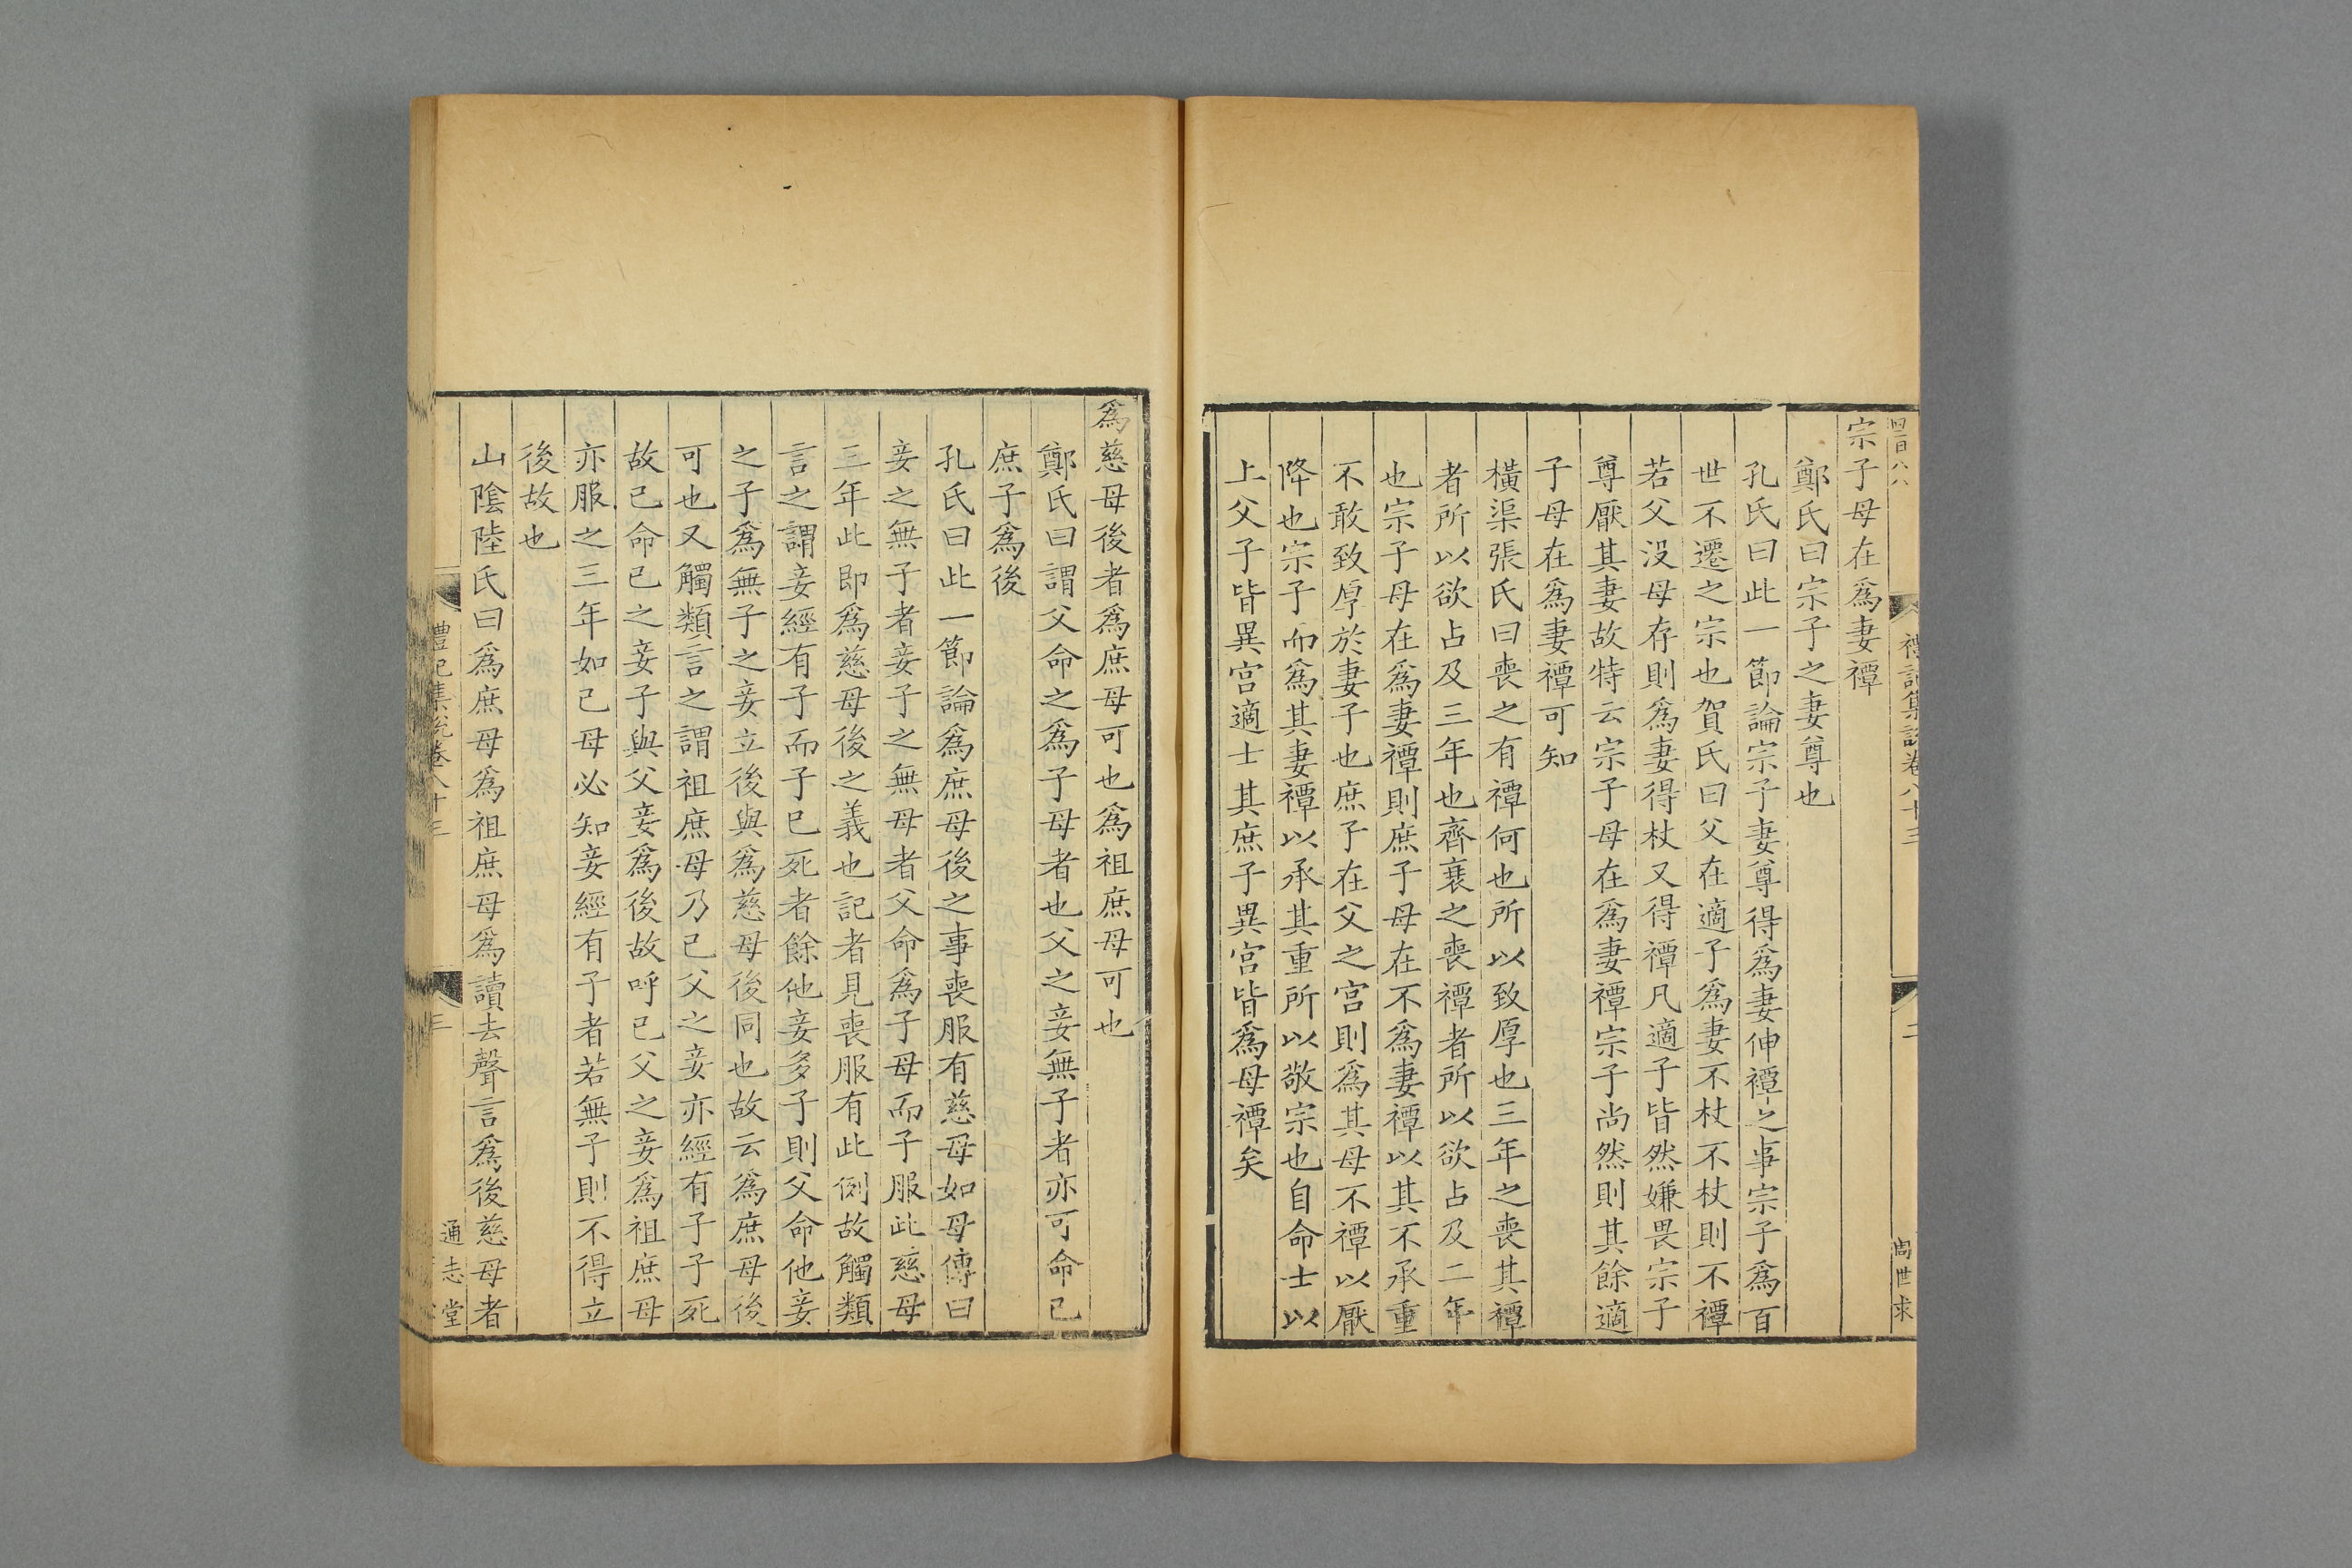 禮記集說卷八十三
二
宗子母在爲妻禫
鄭氏曰宗子之妻尊也
孔氏曰此一節論宗子妻尊得爲妻伸禫之事宗子爲百
世不遷之宗也賀氏曰父在適子爲妻不杖不杖則不禫
若父沒母存則爲妻得杖又得禫凡適子皆然嫌畏宗子
尊厭其妻故特云宗子母在爲妻禫宗子尚然則其餘適
子母在爲妻禫可知
橫渠張氏曰喪之有禫何也所以致厚也三年之喪其禫
者所以欲占及三年也齊衰之喪禫者所以欲占及二年
也宗子母在爲妻禫則庶子母在不爲妻禫以其不承重
不敢致厚於妻子也庶子在父之宮則爲其母不禫以厭
降也宗子而爲其妻禫以承其重所以敬宗也自命士以
上父子皆異宮適士其庶子異宮皆爲母禫矣
爲慈母後者爲庶母可也爲祖庶母可也
鄭氏曰謂父命之爲子母者也父之妾無子者亦可命己
庶子爲後
孔氏曰此一節論爲庶母後之事喪服有慈母如母傳曰
妾之無子者妾子之無母者父命爲子母而子服此慈母
三年此即爲慈母後之義也記者見喪服有此例故觸類
言之謂妾經有子而子已死者餘他妾多子則父命他妾
之子爲無子之妾立後與爲慈母後同也故云爲庶母後
可也又觸類言之謂祖庶母乃己父之妾亦經有子子死
故己命己之妾子與父妾爲後故呼己父之妾爲祖庶母
亦服之三年如己母必知妾經有子者若無子則不得立
後故也
山陰陸氏曰爲庶母爲祖庶母爲讀去聲言爲後慈母者
禮記集說卷八十三
三
通志堂